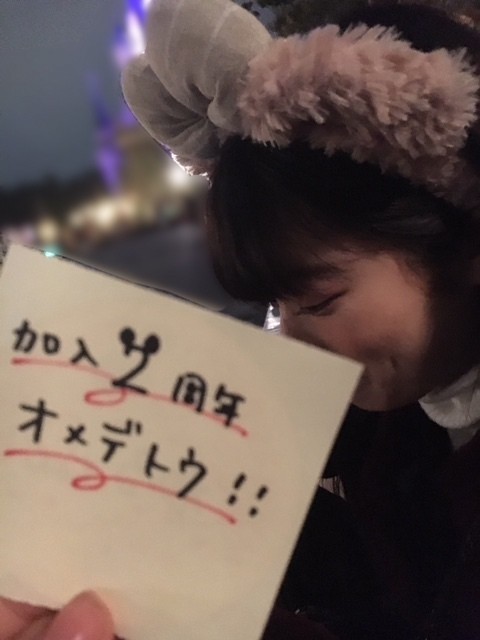 加入2周年
オメデトウ!!